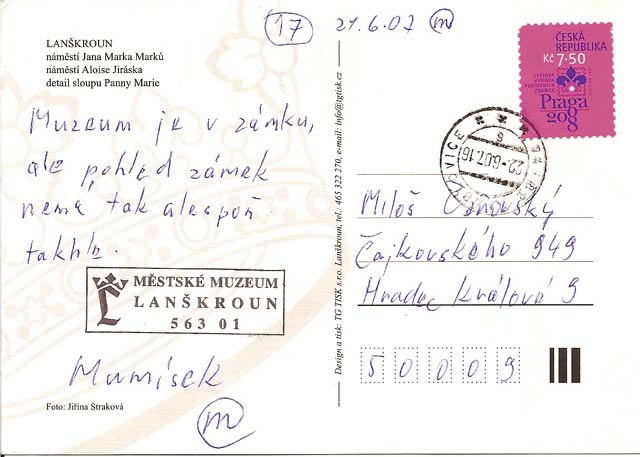 17
21.6.07 m
LANŠKROUN
náměstí Jana Marka Marků
náměstí Aloise Jiráska
detail sloupu Panny Marie
Muzeum je v zámku,
ale pohled zámek
nemá tak alespoň
takhle.
MĚSTSKÉ MUZEUM
LANŠKROUN
563 01
Mumísek
m
Foto: Jiřina Straková
Design a tisk: TG TISK s.r.o. Lanškroun, tel.: 465 322 270, e-mail: info@tgtisk.cz
ČESKÁ
REPUBLIKA
Kč 7·50
SVĚTOVÁ
VÝSTAVA
POŠTOVNÍCH
ZNÁMEK
Praga
2008
22.-6.07.16
Miloš
Čajkovského 949
Hradec Králové 9
50009